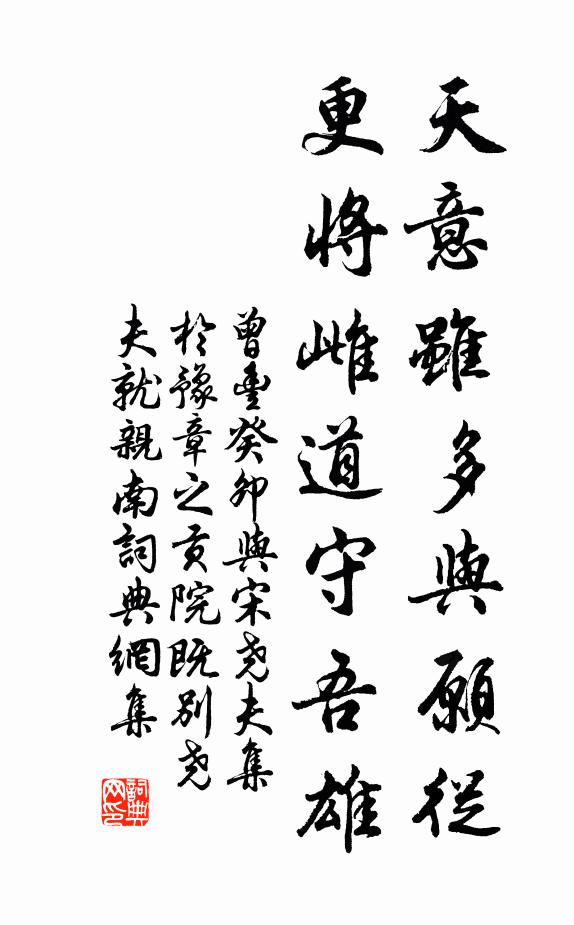 天意雖多與願從
更將雌道守吾雄
曾豐癸卯與宋堯夫集
於豫章之貢院既別堯
夫就親南詞典網集
詞典網印